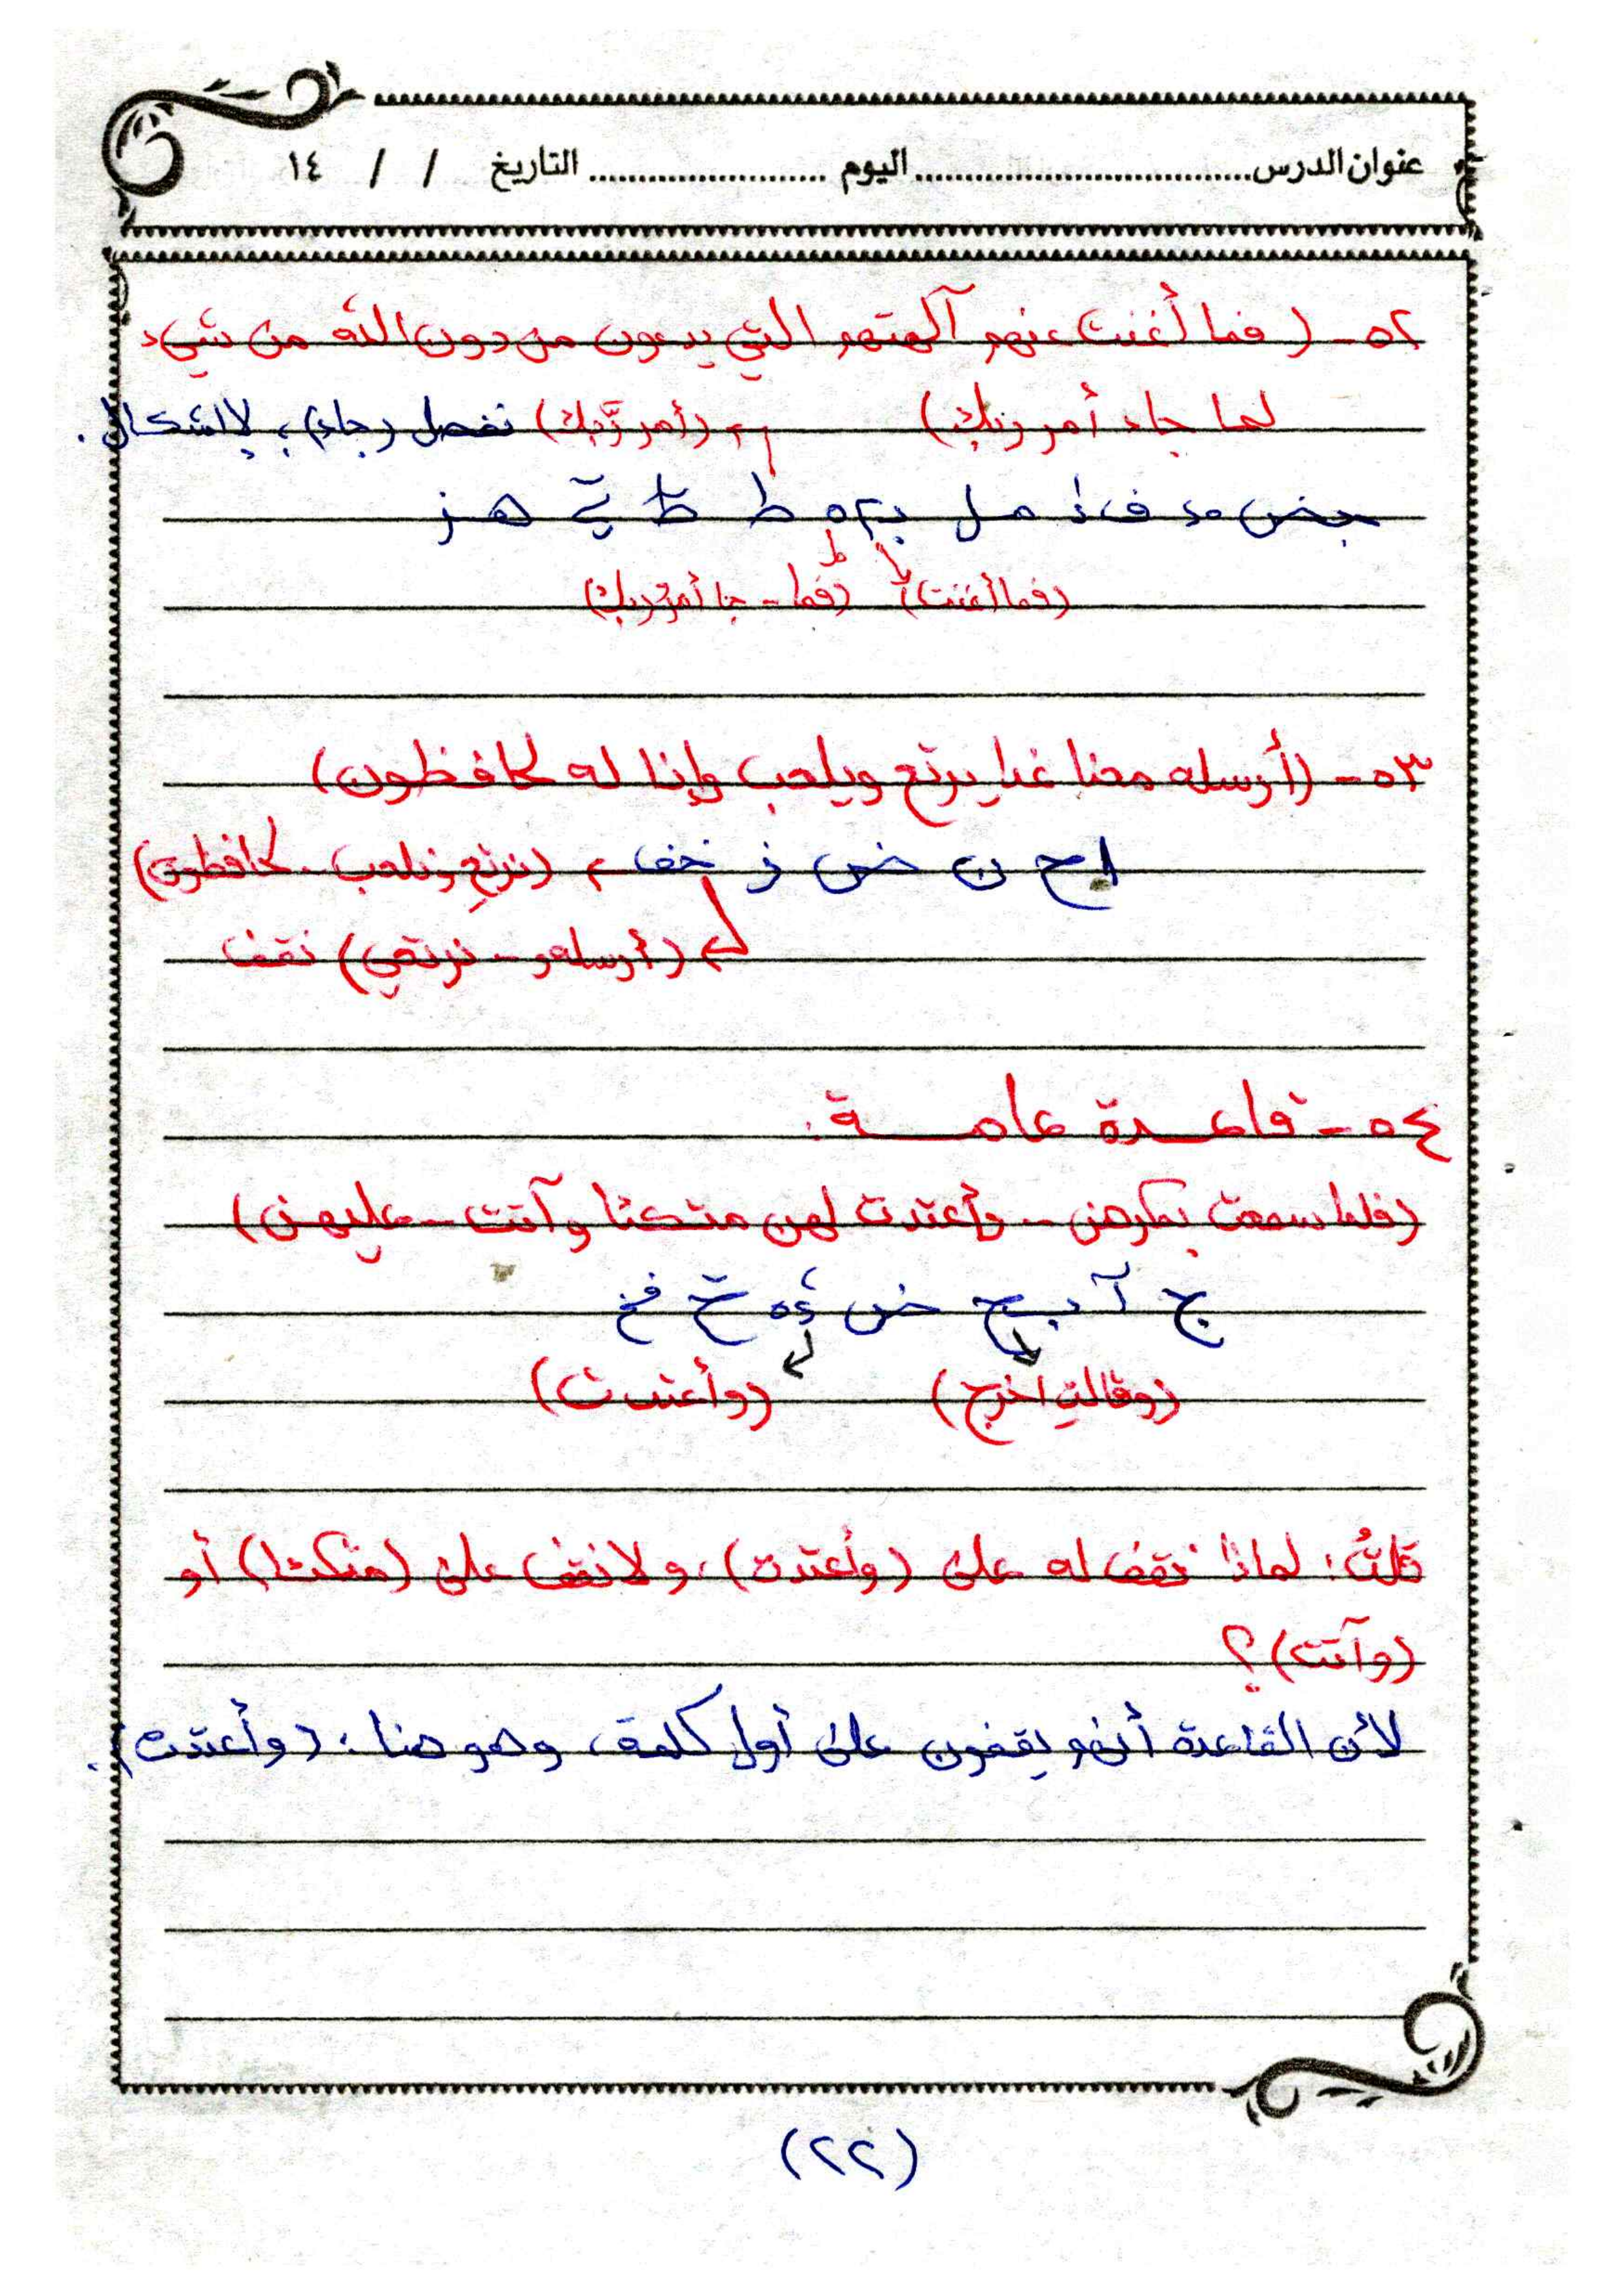 عنوان الدرس................................. اليوم ........................ التاريخ / / ١٤
٥٢ - ( فما أغنت عنهم آلهتهم التي يدعون من دون الله من شيء
لما جاء أمر ربك) (أمر رَّبك) نفصل (جاء)، لا إشكال.
(فما أغنت) (فما - جا أمر ربك)
٥٣ - (أرسله معنا غدا يرتع ويلعب وإنا له لحافظون)
ح ن ض ز خف (نرتعِ ونلعب - لحافظون)
(أرسلهو - نرتعي) نقف
٥٤ - قاعدة عامة:
(فلما سمعت بمكرهن - وأعتدت لهن متكئا وآتت - عليهن)
(وقالتِ اخرج) (وأعتدت)
قلتُ: لماذا نقف له على (وأعتدت)، ولا نقف على (متكئا) أو
(وآتت)؟
لأن القاعدة أنهم يقفون على أول كلمة، وهو هنا: (وأعتدت).
(٢٢)